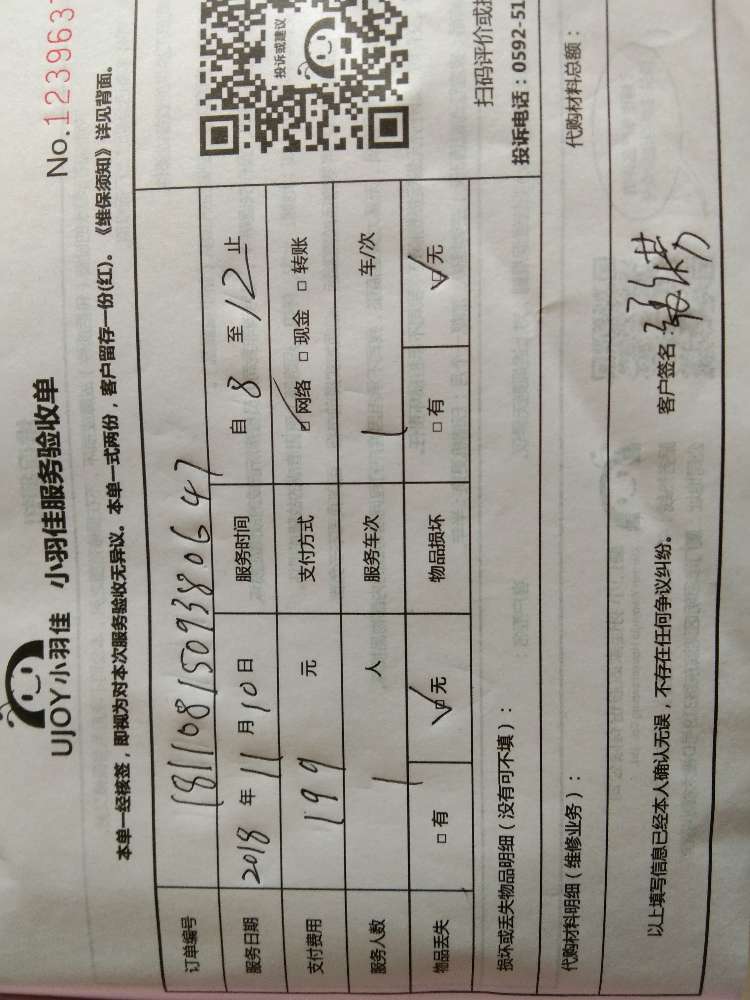 UJOY小羽佳 小羽佳服务验收单
No.123963
本单一经核签，即视为对本次服务验收无异议。本单一式两份，客户留存一份(红)。《维保须知》详见背面。
订单编号 181108150938064
服务日期 2018 年 11 月 10 日 服务时间 自 8 至 12 止
支付费用 199 元 支付方式 □网络 □现金 □转账
服务人数 1 人 服务车次 1 车/次
物品丢失 □有 □无 物品损坏 □有 □无
投诉或建议
扫码评价或
投诉电话：0592-51
损坏或丢失物品明细（没有可不填）：
代购材料明细（维修业务）： 代购材料总额：
以上填写信息已经本人确认无误，不存在任何争议纠纷。 客户签名：